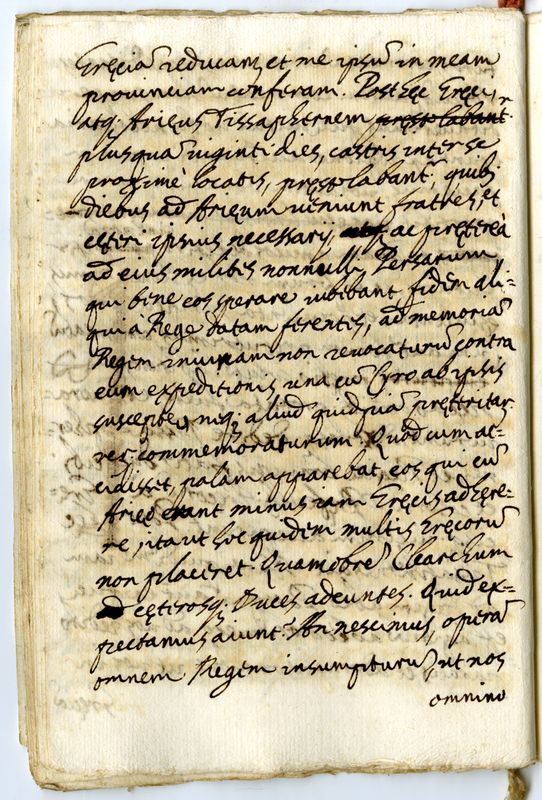 Gręciā reducam, et me ipsū in meam
prouinciam conferam. Post hęc Gręci,
atq; Arięus Tissaphernem pręstolabantr
plusquā uiginti dies, castris inter se
proximè locatis, pręstolabantr, quibs
diebus ad Arięum ueniunt fratres, et
cęteri ipsius necessarij, ac pręterea
ad eius milites nonnulli Persarum,
qui bene eos sperare iubebant, fidem ali=
qui a Rege datam ferentes, ad memoriā
Regem iniuriam non reuocaturū contra
eum expeditionis una cū Cyro ab ipsis
susceptę, neq; aliud quidquā pręteritar.
rer. commemoraturum. Quod cum ac=
cidisset, palam apparebat, eos, qui cū
Arięo erant minus iam Gręcis adhęre=
re, ita ut hoc quidem multis Gręcorū
non placeret. Quamobrē Clearchum
cęterosq; Duces adeuntes. Quid ex=
pectamus aiunt? An nescimus, operā
omnem Regem insumpturū, ut nos
omnino